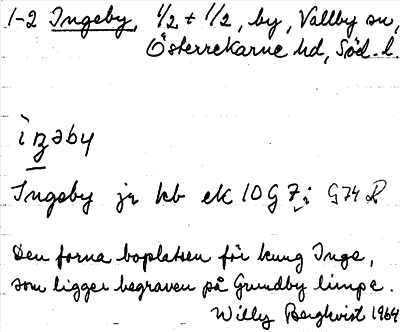 1-2 Ingeby, 1/2 + 1/2, by, Vallby sn,
Österrekarne hd, Söd. l.
ìŋəby
Ingeby jr kb ek 10G7i G74
Den forna boplatsen för kung Inge,
som ligger begraven på Grundby limpa.
Willy Bergkvist 1964